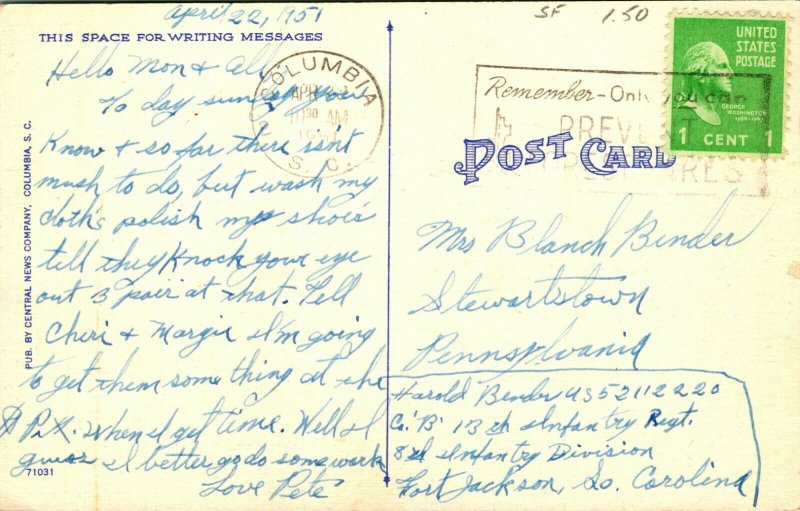 April 22, 1951
SF 1.50
THIS SPACE FOR WRITING MESSAGES
Hello Mon & All
To day sunday you
Know & so far there isn't
mush to do, but wash my
cloths polish my shoes
till they Knock your eye
out 3 pair at that. Tell
Cheri & Margie I'm going
to get them some thing at the
P.X. when I get time. Well I
guess I better go do some work
Love Pete
71031
PUB. BY CENTRAL NEWS COMPANY, COLUMBIA, S. C.
COLUMBIA
APR 22
10 30 AM
1951
S. C.
Remember - Only you can
PREVENT
FIRES
UNITED
STATES
POSTAGE
GEORGE
WASHINGTON
1 CENT 1
POST CARD
Mrs Blanch Bender
Stewartstown
Pennsylvania
Harold Bender US52112220
Co. "B" 13th Infantry Regt.
8th Infantry Division
Fort Jackson, So. Carolina